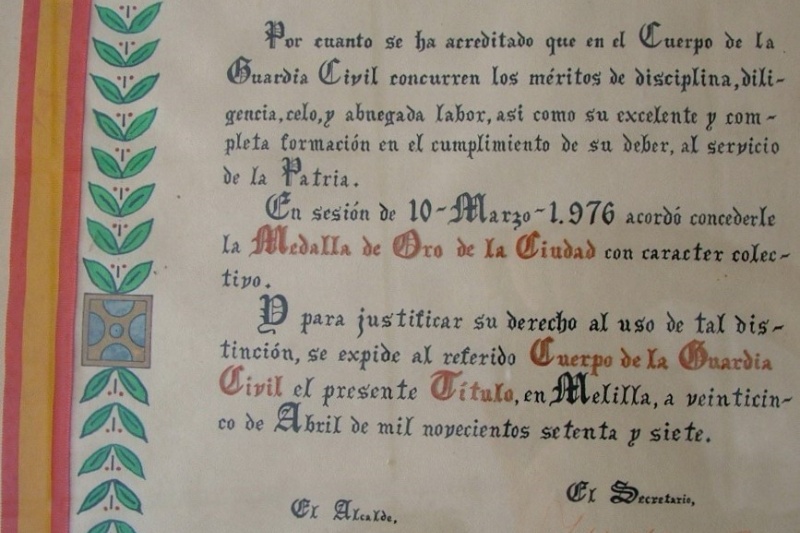 Por cuanto se ha acreditado que en el Cuerpo de la
Guardia Civil concurren los méritos de disciplina, dili-
gencia, celo, y abnegada labor, asi como su excelente y com-
pleta formación en el cumplimiento de su deber, al servicio
de la Patria.
En sesión de 10-Marzo-1.976 acordó concederle
la Medalla de Oro de la Ciudad con caracter colec-
tivo.
Y para justificar su derecho al uso de tal dis-
tinción, se expide al referido Cuerpo de la Guardia
Civil el presente Título, en Melilla, a veinticin-
co de Abril de mil novecientos setenta y siete.
El Secretario,
El Alcalde,